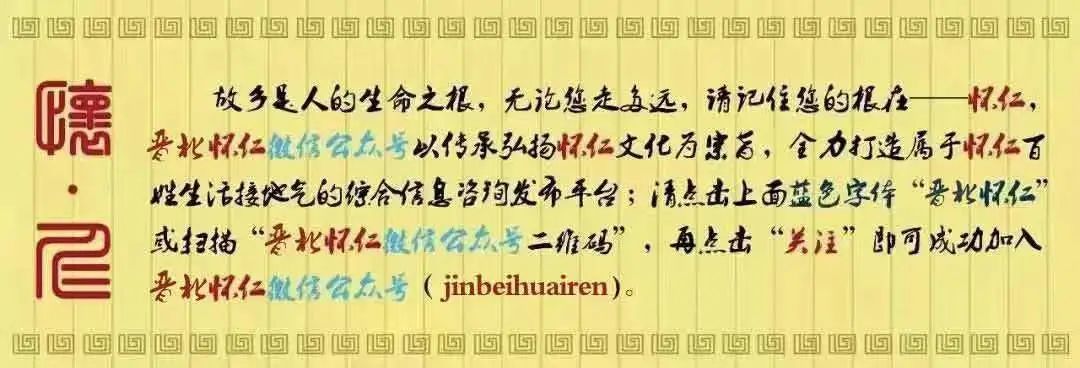 懷·仁
故乡是人的生命之根，无论您走多远，请记住您的根在——怀仁，
晋北怀仁微信公众号以传承弘扬怀仁文化为宗旨，全力打造属于怀仁百
姓生活接地气的综合信息咨询发布平台；请点击上面蓝色字体“晋北怀仁”
或扫描“晋北怀仁微信公众号二维码”，再点击“关注”即可成功加入
晋北怀仁微信公众号（jinbeihuairen）。